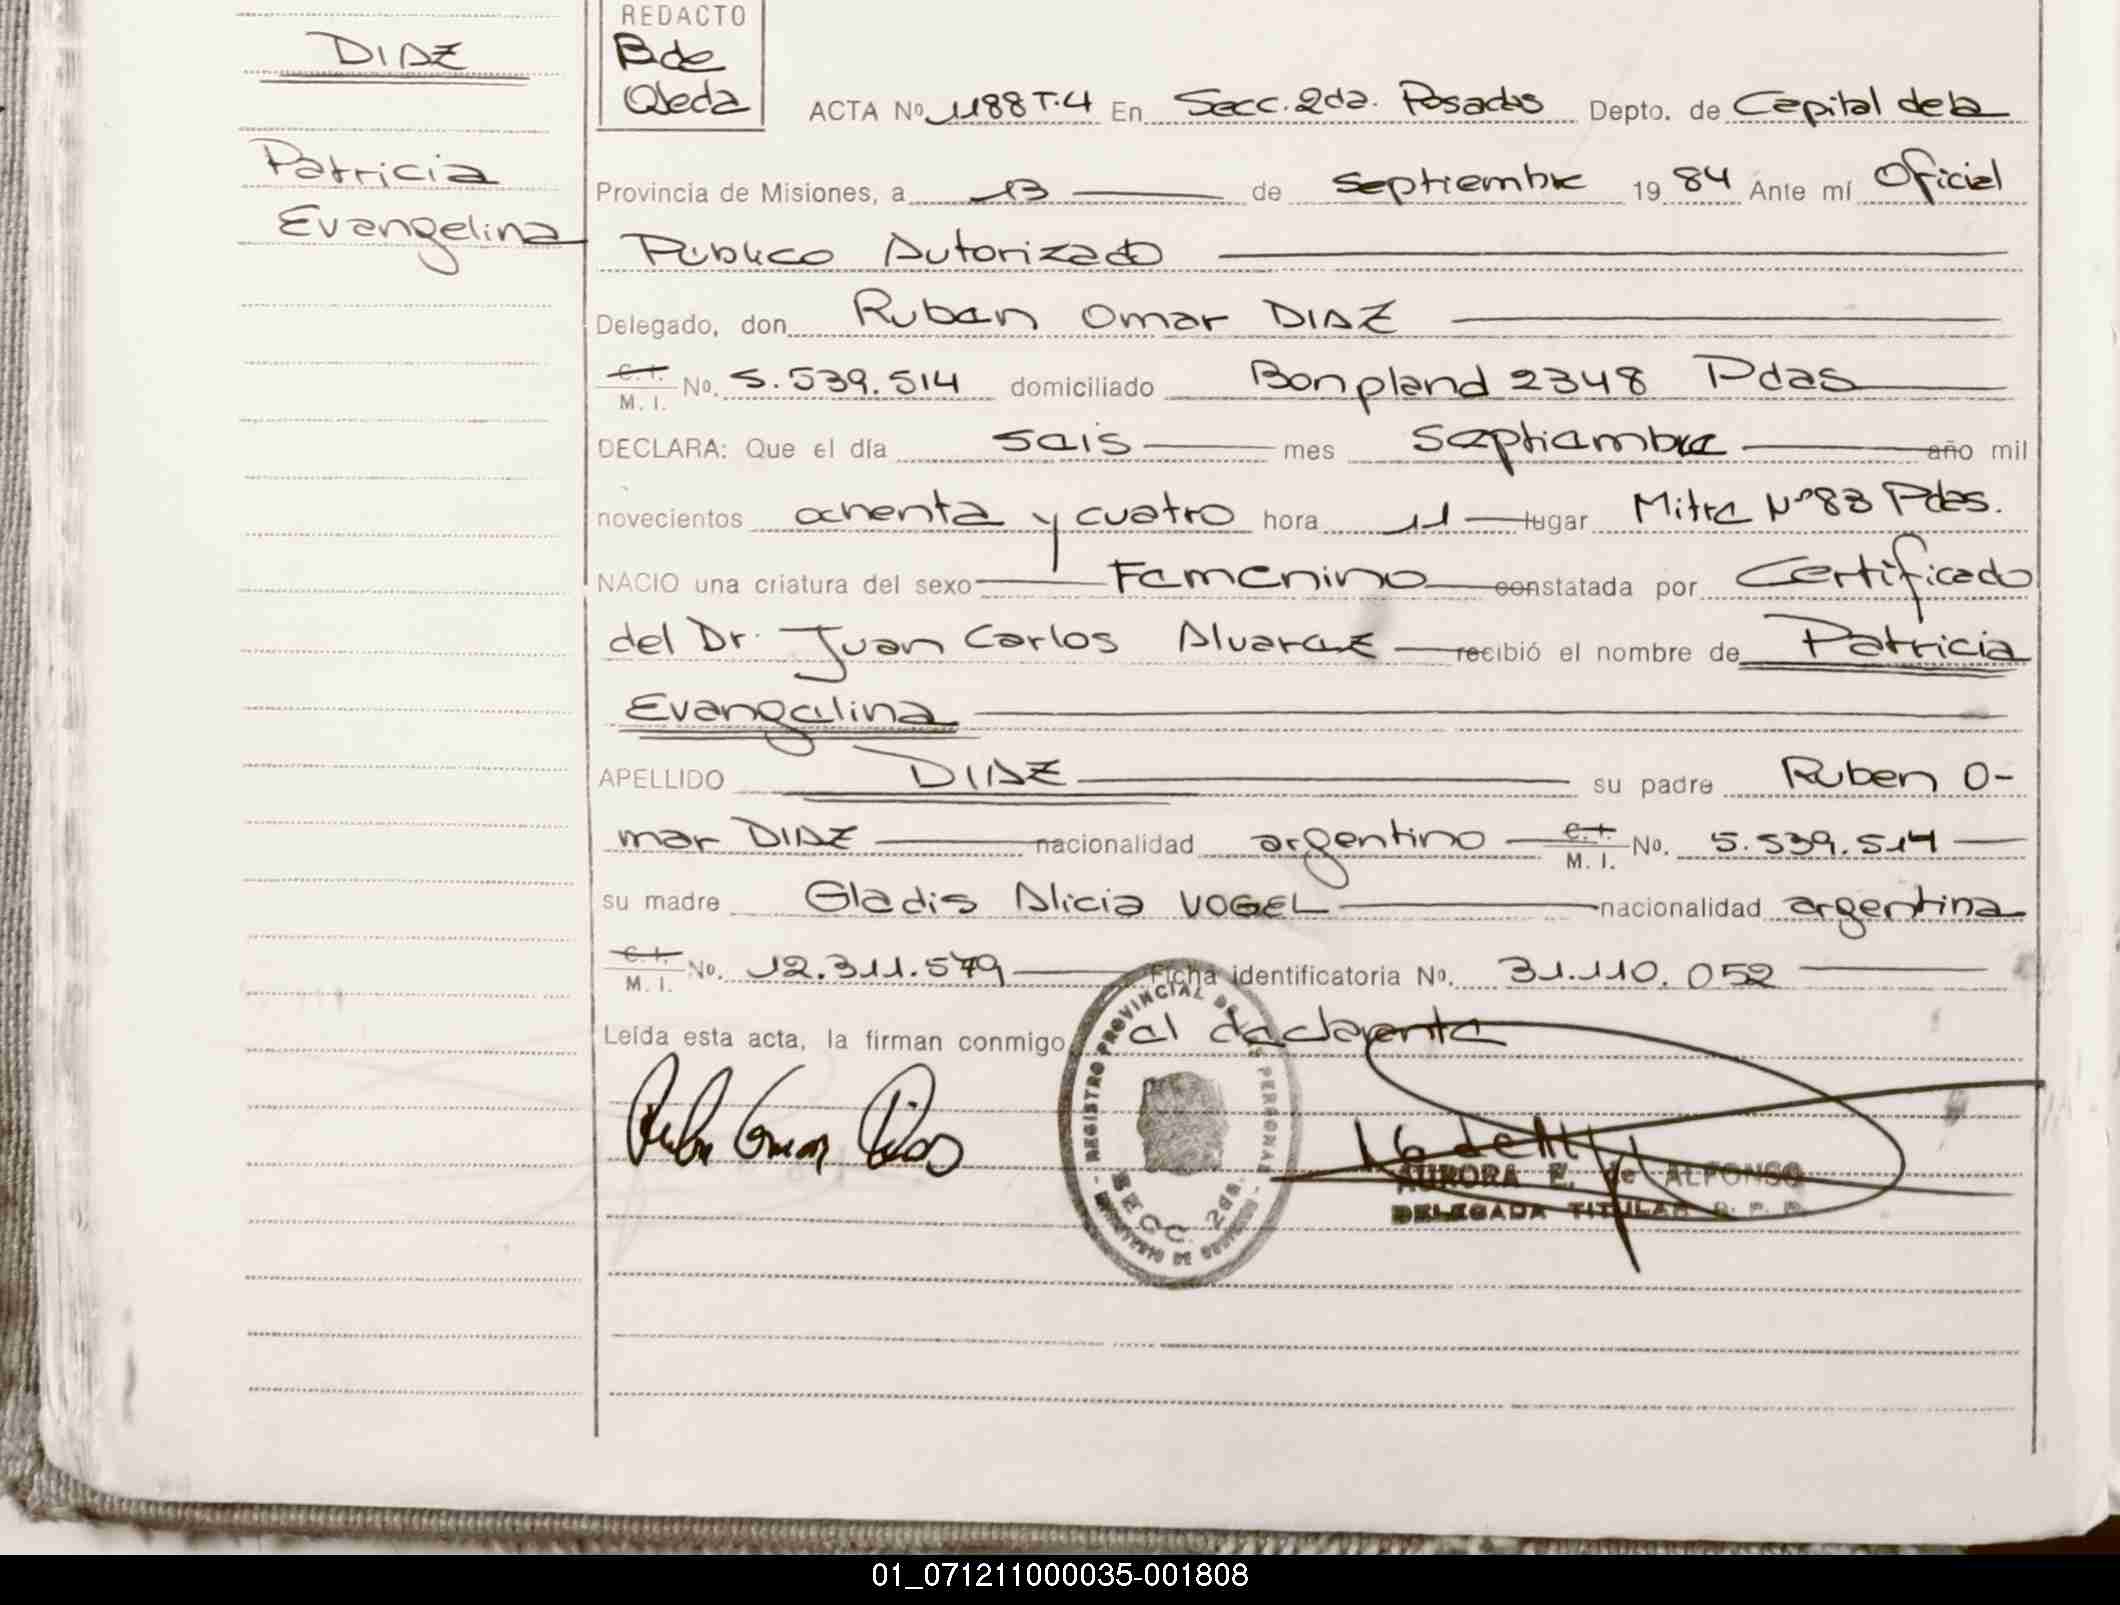 DIAZ
Patricia
Evangelina
REDACTO
B de
Ojeda
ACTA Nº 1188 T.4 En Secc. 2da. Posadas Depto. de Capital de la
Provincia de Misiones, a 13 de septiembre 19 84 Ante mí Oficial
Público Autorizado
Delegado, don Ruben Omar DIAZ
C. I. M. I. Nº. 5.539.514 domiciliado Bonpland 2348 Pdas
DECLARA: Que el día seis mes septiembre año mil
novecientos ochenta y cuatro hora 11 lugar Mitre Nº 83 Pdas.
NACIO una criatura del sexo Femenino constatada por Certificado
del Dr. Juan Carlos Alvarez recibió el nombre de Patricia
Evangelina
APELLIDO DIAZ su padre Ruben O-
mar DIAZ nacionalidad argentino C. I. M. I. Nº. 5.539.514
su madre Gladis Alicia VOGEL nacionalidad argentina
C. I. M. I. Nº. 12.311.579 Ficha identificatoria Nº. 31.110.052
Leída esta acta, la firman conmigo el declarente
Ruben Omar Diaz
REGISTRO PROVINCIAL DE LAS PERSONAS
SECC. 2da.
MINISTERIO DE GOBIERNO
AURORA E. de ALFONSO
DELEGADA TITULAR R. P. P.
01_071211000035-001808